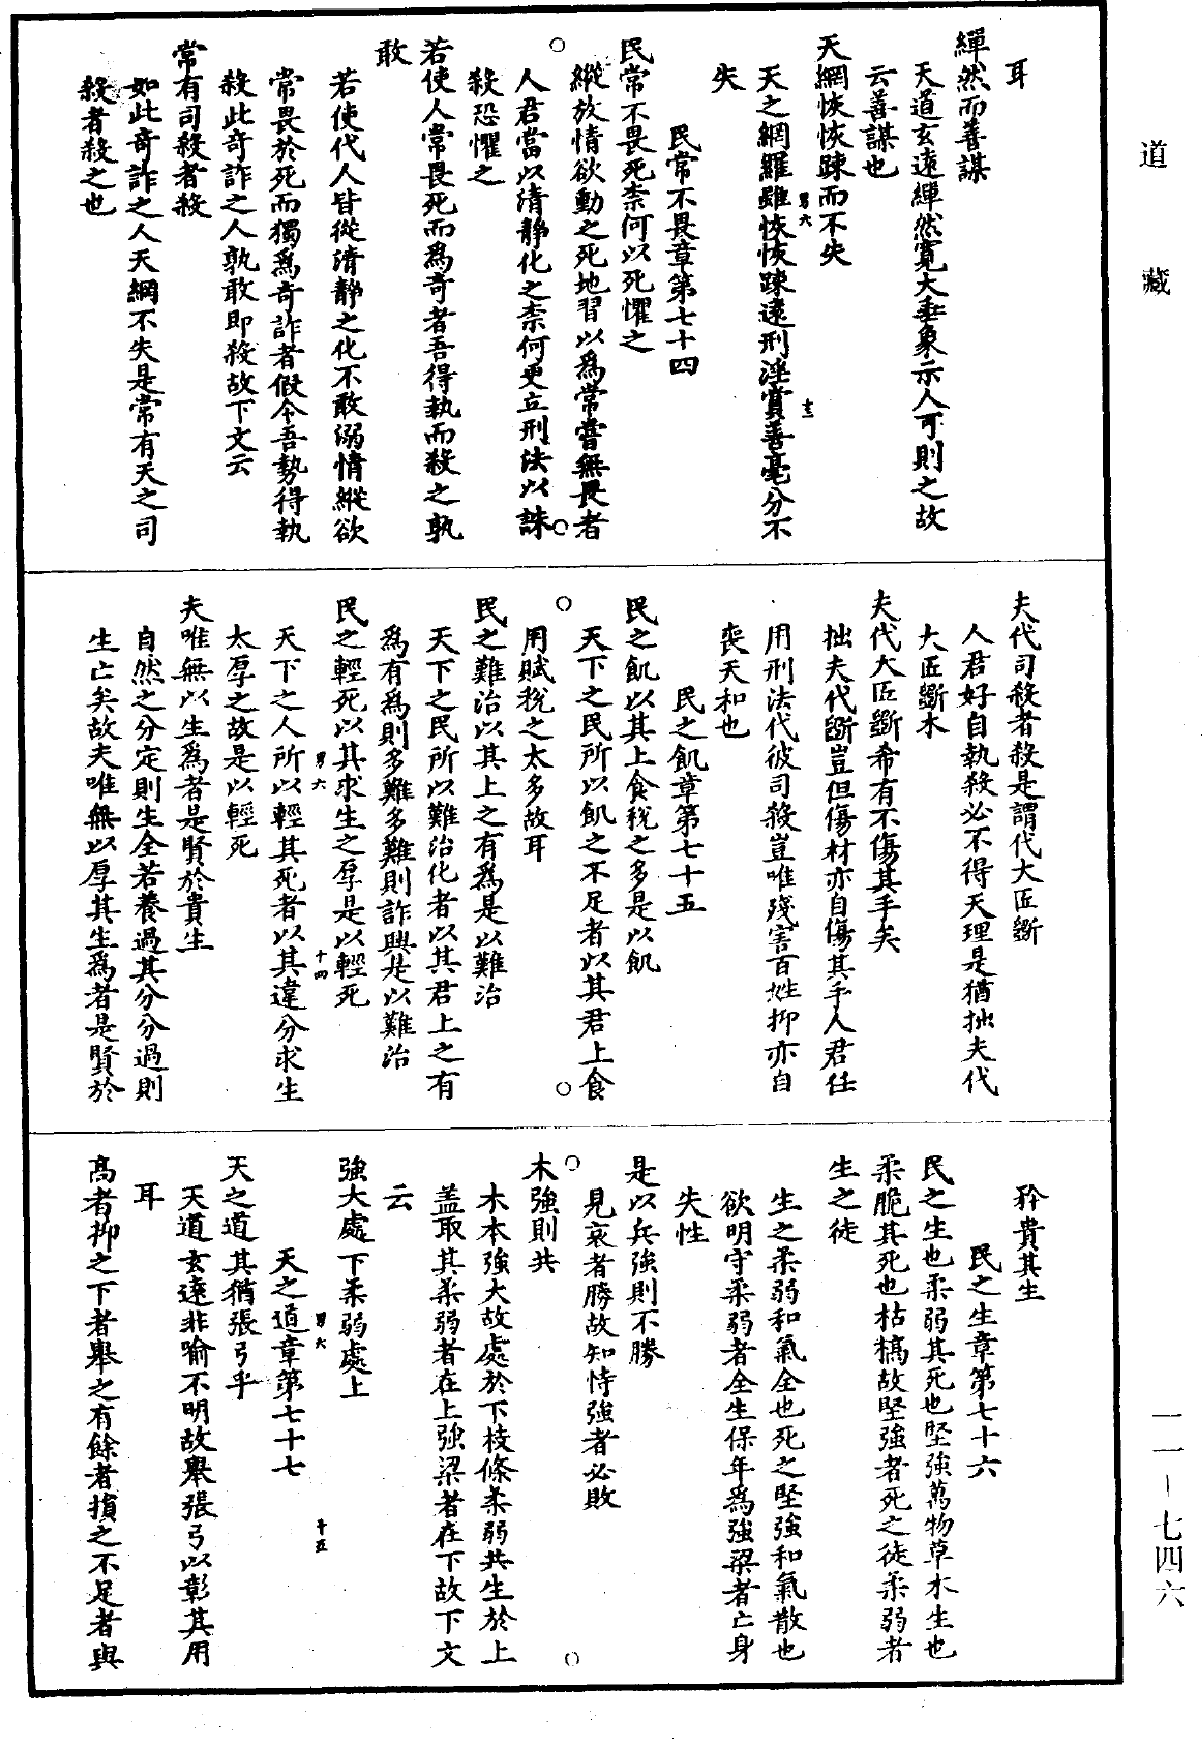 道 藏
耳
繟然而善謀
天道玄遠繟然寬大垂象示人可則之故
云善謀也
天網恢恢踈而不失
男六
十三
天之網羅雖恢恢踈遠刑淫賞善毫分不
失
民常不畏章第七十四
民常不畏死柰何以死懼之
縱放情欲動之死地習以爲常當無畏者
人君當以清靜化之柰何更立刑法以誅
殺恐懼之
若使人常畏死而爲奇者吾得執而殺之孰
敢
若使代人皆從清靜之化不敢溺情縱欲
常畏於死而獨爲奇詐者假令吾勢得執
殺此奇詐之人孰敢即殺故下文云
常有司殺者殺
如此奇詐之人天網不失是常有天之司
殺者殺之也
夫代司殺者殺是謂代大匠斲
人君好自執殺必不得天理是猶拙夫代
大匠斲木
夫代大匠斲希有不傷其手矣
拙夫代斲豈但傷材亦自傷其手人君任
用刑法代彼司殺豈唯殘害百姓抑亦自
喪天和也
民之飢章第七十五
民之飢以其上食稅之多是以飢
天下之民所以飢之不足者以其君上食
用賦稅之太多故耳
民之難治以其上之有爲是以難治
天下之民所以難治化者以其君上之有
爲有爲則多難多難則詐興是以難治
民之輕死以其求生之厚是以輕死
男六
十四
天下之人所以輕其死者以其違分求生
太厚之故是以輕死
夫唯無以生爲者是賢於貴生
自然之分定則生全若養過其分分過則
生亡矣故夫唯無以厚其生爲者是賢於
矜貴其生
民之生章第七十六
民之生也柔弱其死也堅強萬物草木生也
柔脆其死也枯槁故堅強者死之徒柔弱者
生之徒
生之柔弱和氣全也死之堅強和氣散也
欲明守柔弱者全生保年爲強梁者亡身
失性
是以兵強則不勝
見哀者勝故知恃強者必敗
木強則共
木本強大故處於下枝條柔弱共生於上
盖取其柔弱者在上強梁者在下故下文
云
強大處下柔弱處上
男六
十五
天之道章第七十七
天之道其猶張弓乎
天道玄遠非喻不明故舉張弓以彰其用
耳
高者抑之下者舉之有餘者損之不足者與
一一－七四六